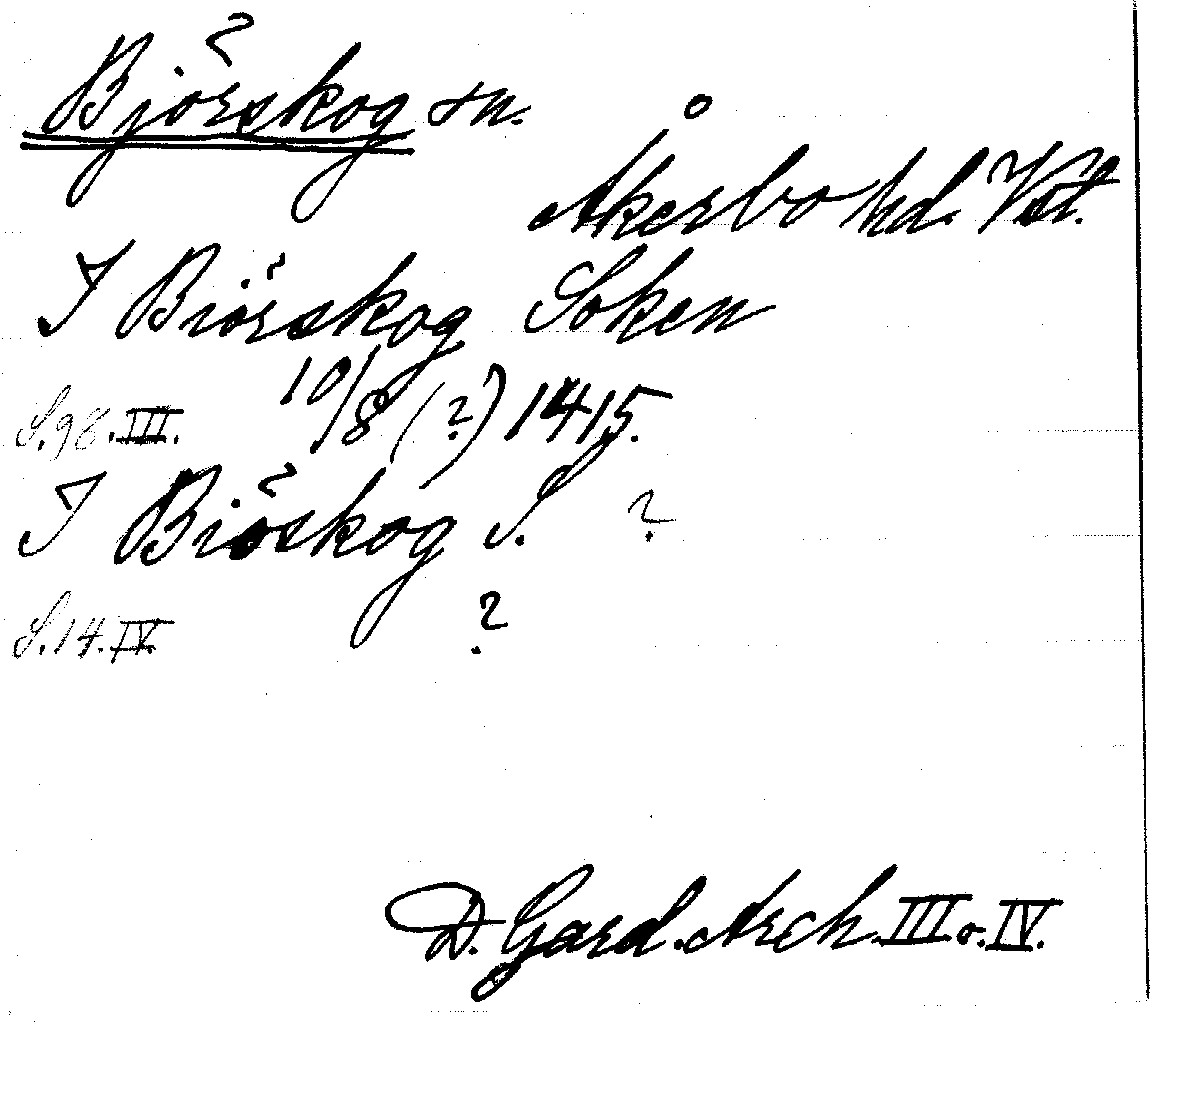 Björskog sn.
Åkerbo hd. Vstl.
I Biörskog Soken
S. 98. III. 10/8 (?) 1415.
I Biöskog S. ?
S. 14. IV. ?
D. Gard. Arch. III o. IV.